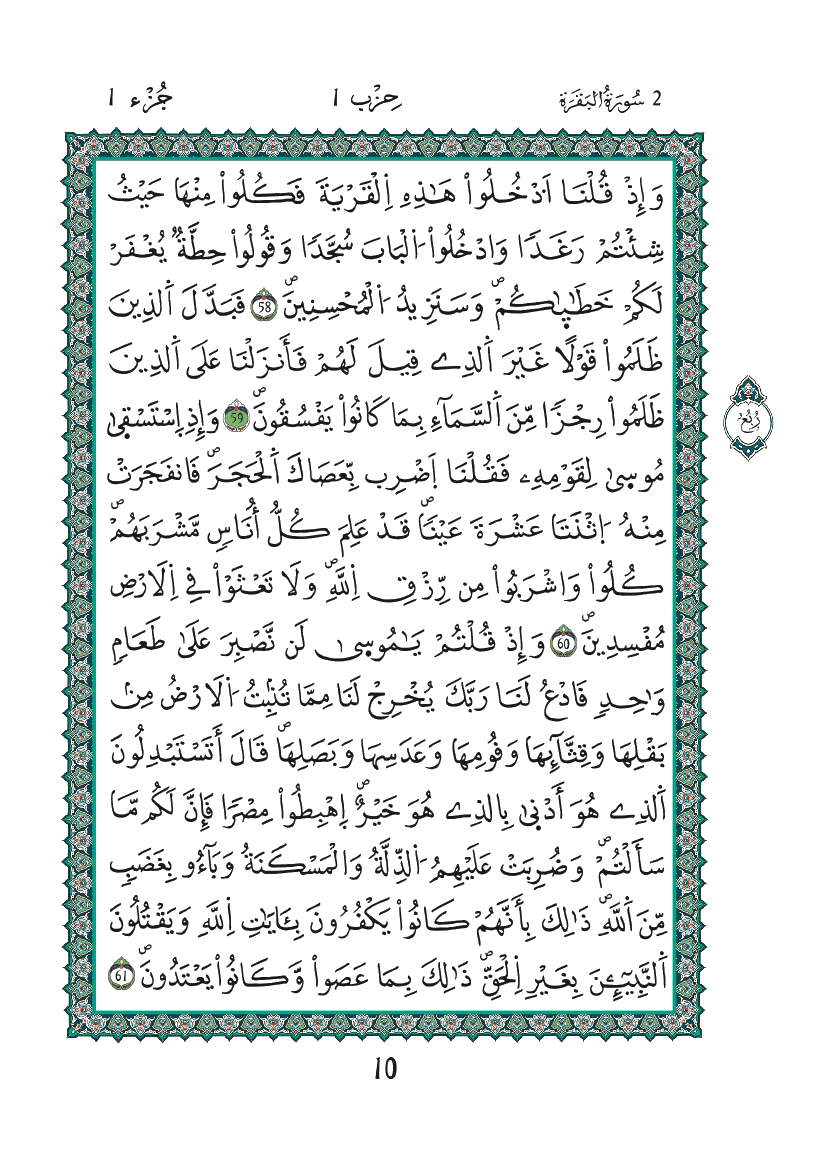 2 سُورَةُ الْبَقَرَة
حِزْب 1
جُزْء 1
وَإِذْ قُلْنَا اَدْخُلُواْ هَٰذِهِ اِ۬لْقَرْيَةَ فَكُلُواْ مِنْهَا حَيْثُ
شِئْتُمْ رَغَداٗ وَادْخُلُواْ اُ۬لْبَابَ سُجَّداٗ وَقُولُواْ حِطَّةٞ يُغْفَرْ
لَكُمْ خَطَٰيَٰكُمْۖ وَسَنَزِيدُ اُ۬لْمُحْسِنِينَۖ 58 فَبَدَّلَ اَ۬لذِينَ
ظَلَمُواْ قَوْلًا غَيْرَ اَ۬لذِے قِيلَ لَهُمْ فَأَنزَلْنَا عَلَى اَ۬لذِينَ
ظَلَمُواْ رِجْزاٗ مِّنَ اَ۬لسَّمَآءِ بِمَا كَانُواْ يَفْسُقُونَۖ 59 وَإِذِ اِ۪سْتَسْقَىٰ
رُبُعُ
مُوسَىٰ لِقَوْمِهِۦ فَقُلْنَا اَ۪ضْرِب بِّعَصَاكَ اَ۬لْحَجَرَۖ فَانفَجَرَتْ
مِنْهُ اُ۪ثْنَتَا عَشْرَةَ عَيْناٗۖ قَدْ عَلِمَ كُلُّ أُنَاسٖ مَّشْرَبَهُمْۖ
كُلُواْ وَاشْرَبُواْ مِن رِّزْقِ اِ۬للَّهِۖ وَلَا تَعْثَوْاْ فِے اِ۬لَارْضِ
مُفْسِدِينَۖ 60 وَإِذْ قُلْتُمْ يَٰمُوسَىٰ لَن نَّصْبِرَ عَلَىٰ طَعَامٖ
وَٰحِدٖ فَادْعُ لَنَا رَبَّكَ يُخْرِجْ لَنَا مِمَّا تُنۢبِتُ اُ۬لَارْضُ مِنۢ
بَقْلِهَا وَقِثَّآئِهَا وَفُومِهَا وَعَدَسِهَا وَبَصَلِهَاۖ قَالَ أَتَسْتَبْدِلُونَ
اَ۬لذِے هُوَ أَدْنَىٰ بِالذِے هُوَ خَيْرٌۖ اِ۪هْبِطُواْ مِصْراٗ فَإِنَّ لَكُم مَّا
سَأَلْتُمْۖ وَضُرِبَتْ عَلَيْهِمُ اُ۬لذِّلَّةُ وَالْمَسْكَنَةُ وَبَآءُو بِغَضَبٖ
مِّنَ اَ۬للَّهِۖ ذَٰلِكَ بِأَنَّهُمْ كَانُواْ يَكْفُرُونَ بِـَٔايَٰتِ اِ۬للَّهِ وَيَقْتُلُونَ
اَ۬لنَّبِيٓـِٕينَ بِغَيْرِ اِ۬لْحَقِّۖ ذَٰلِكَ بِمَا عَصَواْ وَّكَانُواْ يَعْتَدُونَۖ 61
10